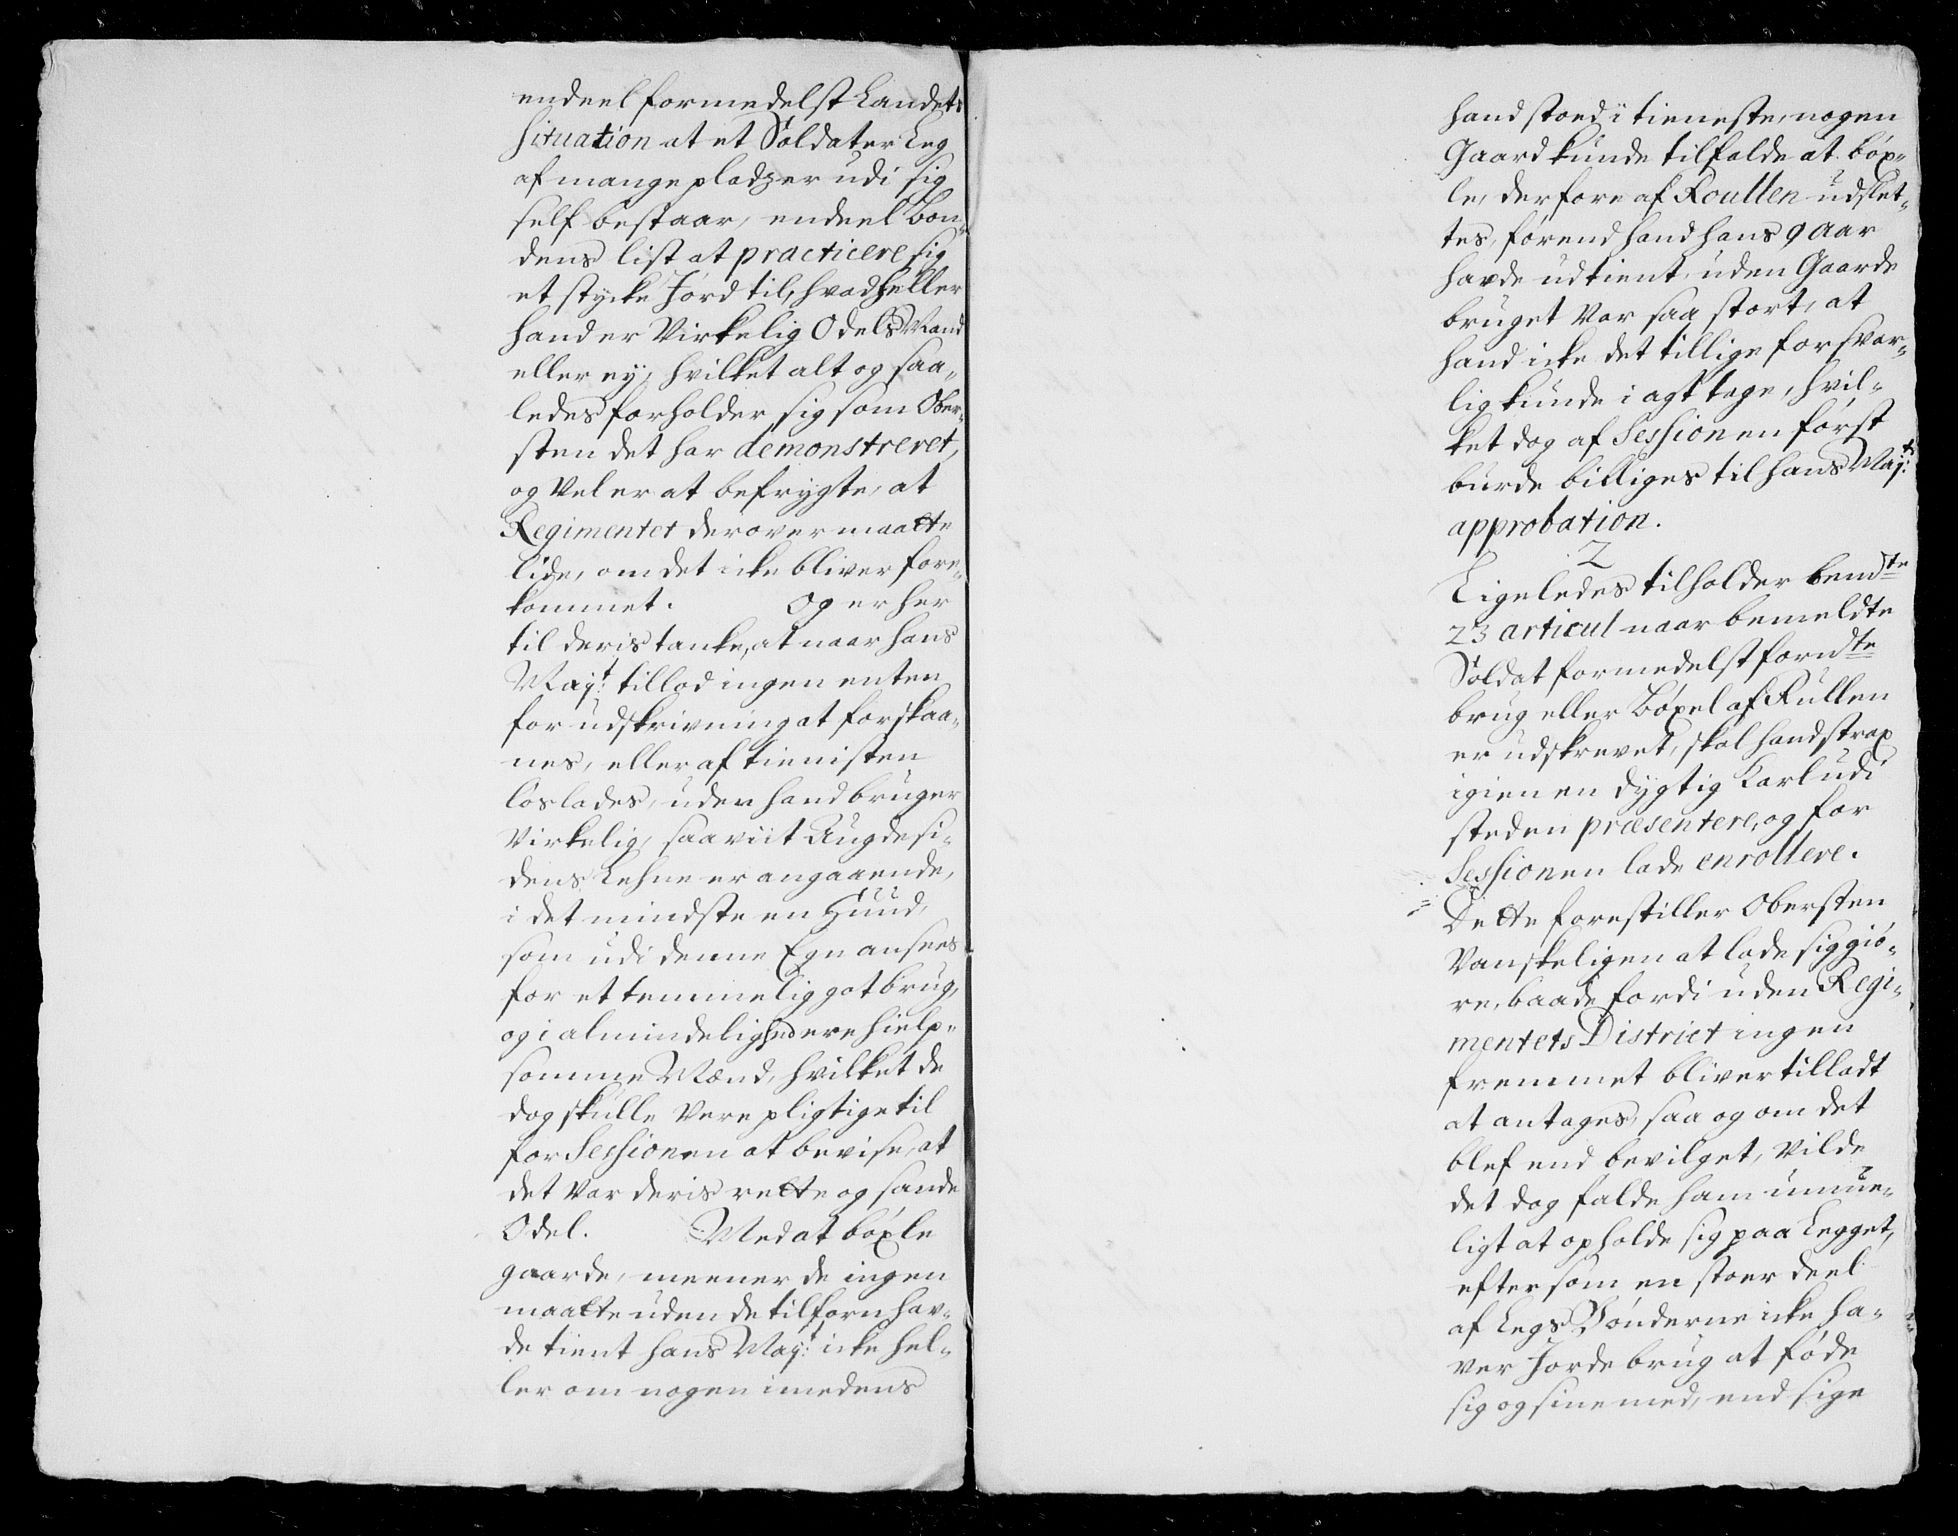 endeel formedelst Landets
Situation at et Soldater Leg
af mange pladzer udi sig
self bestaar, endeel Bon„
dens list at practicere sig
et stycke Jord til, hvad heller
hand er Virkelig Odels Mand
eller ey, hvilket alt og saa„
ledes forholder sig som Ober„
sten det har demonstreret,
og vel er at befrygte, at
Regimentet derover maatte
lide, om det icke bliver fore„
kommet. Og er her
til deris tanke, at naar hans
Mayt: tillod ingen enten
for udskrivning at forskaa„
nes, eller af tienisten
loslades, uden hand bruger
Virkelig, saaviit Augdesi„
dens Lehne er angaaende,
i det mindste en Huud,
som udi denne Egn ansees
for et temmelig got brug,
og i almindelighed ere hielp„
somme Mænd, hvilket de
dog skulle Vere pligtige til
for Sessionen at bevise, at
det Var deris rette og sande
Odel. Med at böxle
gaarde, meener de ingen
maatte uden de tilforn hav„
de tient hans Mayt: icke hel„
ler om nogen imedens
hand stoed i tieneste, nogen
Gaard kunde tilfalde at böx„
le, derfore af Roullen udslet„
tes, forend hand hans 9 aar
havde udtient, uden Gaarde
bruget Var saa stort, at
hand icke det tillige forsvar„
lig kunde i agt tage, hvil„
ket dog af Sessionen först
burde billiges til hans Mayts:
approbation.
2
Ligeledes tilholder bemdte
23 articul naar bemeldte
Soldat formedelst forndte
brug eller Böxel af Rullen
er udskrevet, skal hand strax
igien en dygtig Karl udi
steden præsentere, og for
Sessionen lade enrollere.
Dette forestiller Obersten
Vanskeligen at lade sig giö„
re, baade fordi uden Regi„
mentets District ingen
fremmet bliver tilladt
at antages, saa og om det
blef end bevilget, Vilde
det dog falde ham umue„
ligt at opholde sig paa Legget,
eftersom en stoer deel
af Legs Bönderne icke ha„
ver Jorde brug at föde
sig og sine med, end sige